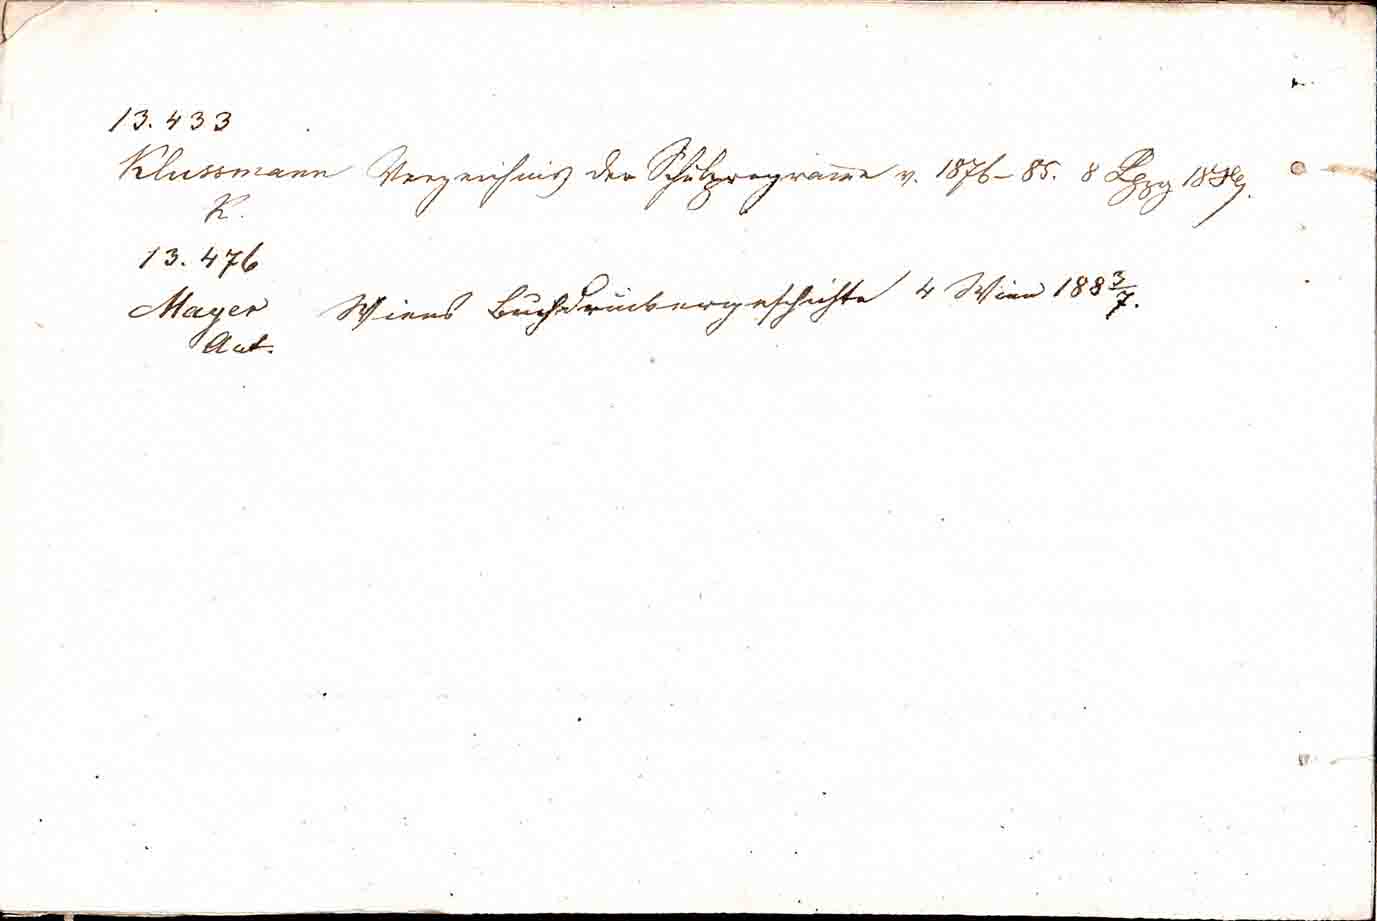 13.433
Klussmann Verzeichnis der Schulprogramme v. 1876–85. 8 Lpzg 1889.
R.
13.476
Mayer Wiens Buchdruckergeschichte 4 Wien 188 3/7.
Ant.